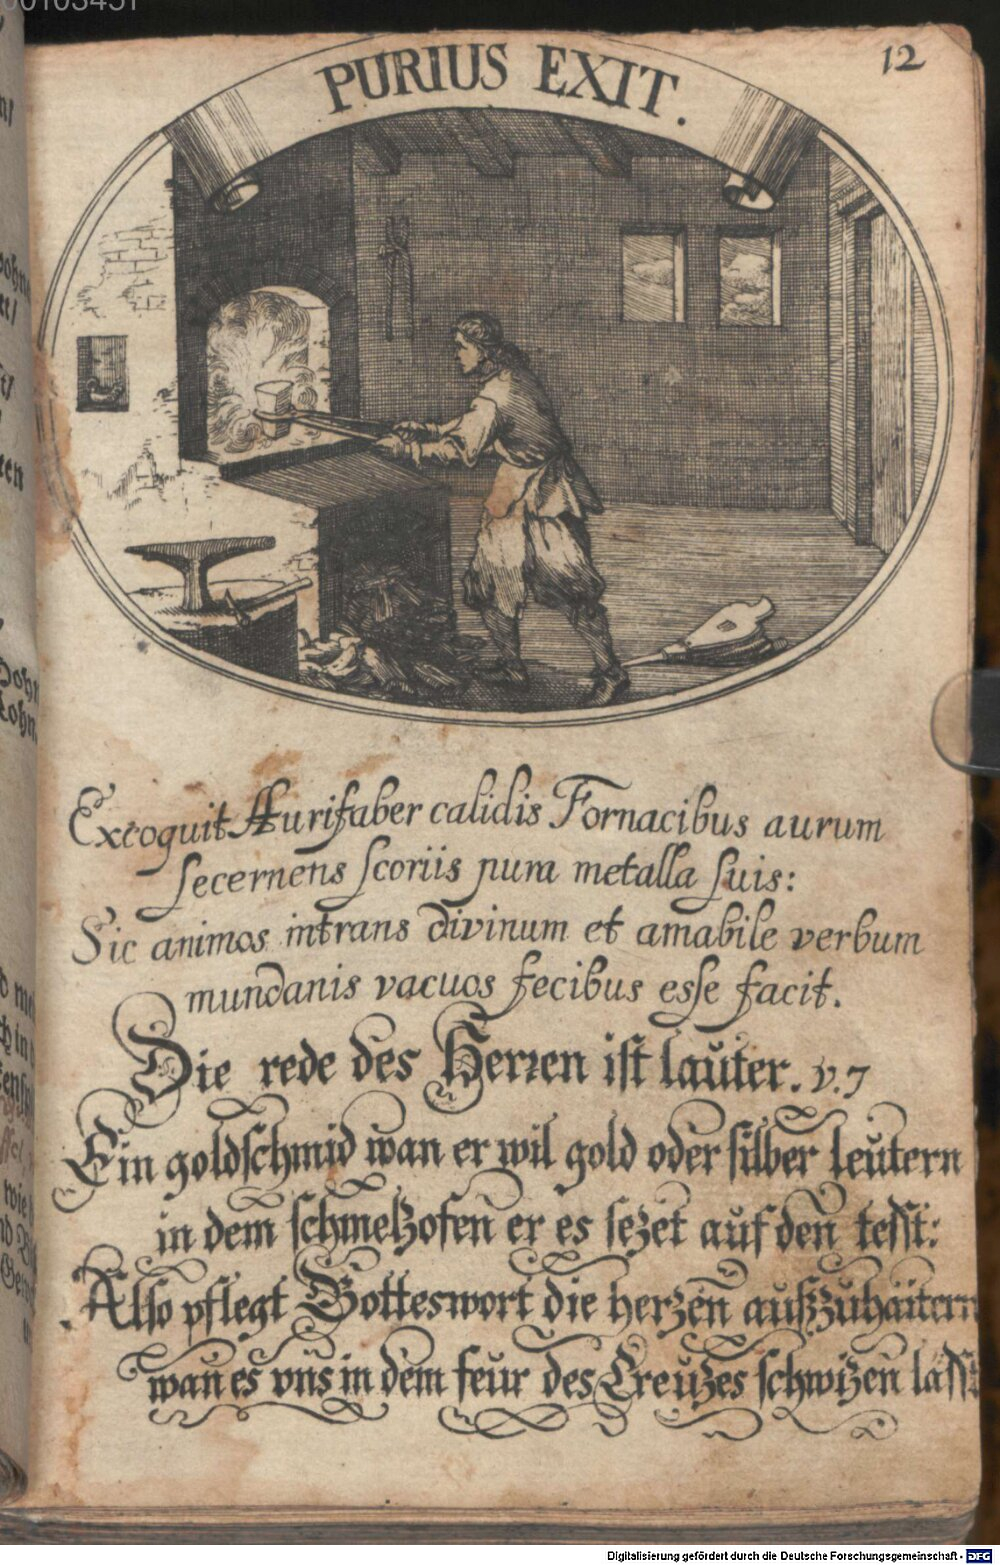 12
PURIUS EXIT.
Excoquit Aurifaber calidis Fornacibus aurum
secernens scoriis pura metalla suis:
Sic animos intrans divinum et amabile verbum
mundanis vacuos fecibus esse facit.
Die rede des Herren ist lauter. v. 7
Ein goldschmid wan er wil gold oder silber leutern
in dem schmelzofen er es sezet auf den tesst:
Also pflegt Gotteswort die herzen außzuhäitern
wan es vns in dem feur des Creuzes schwizen lässt
Digitalisierung gefördert durch die Deutsche Forschungsgemeinschaft - DFG